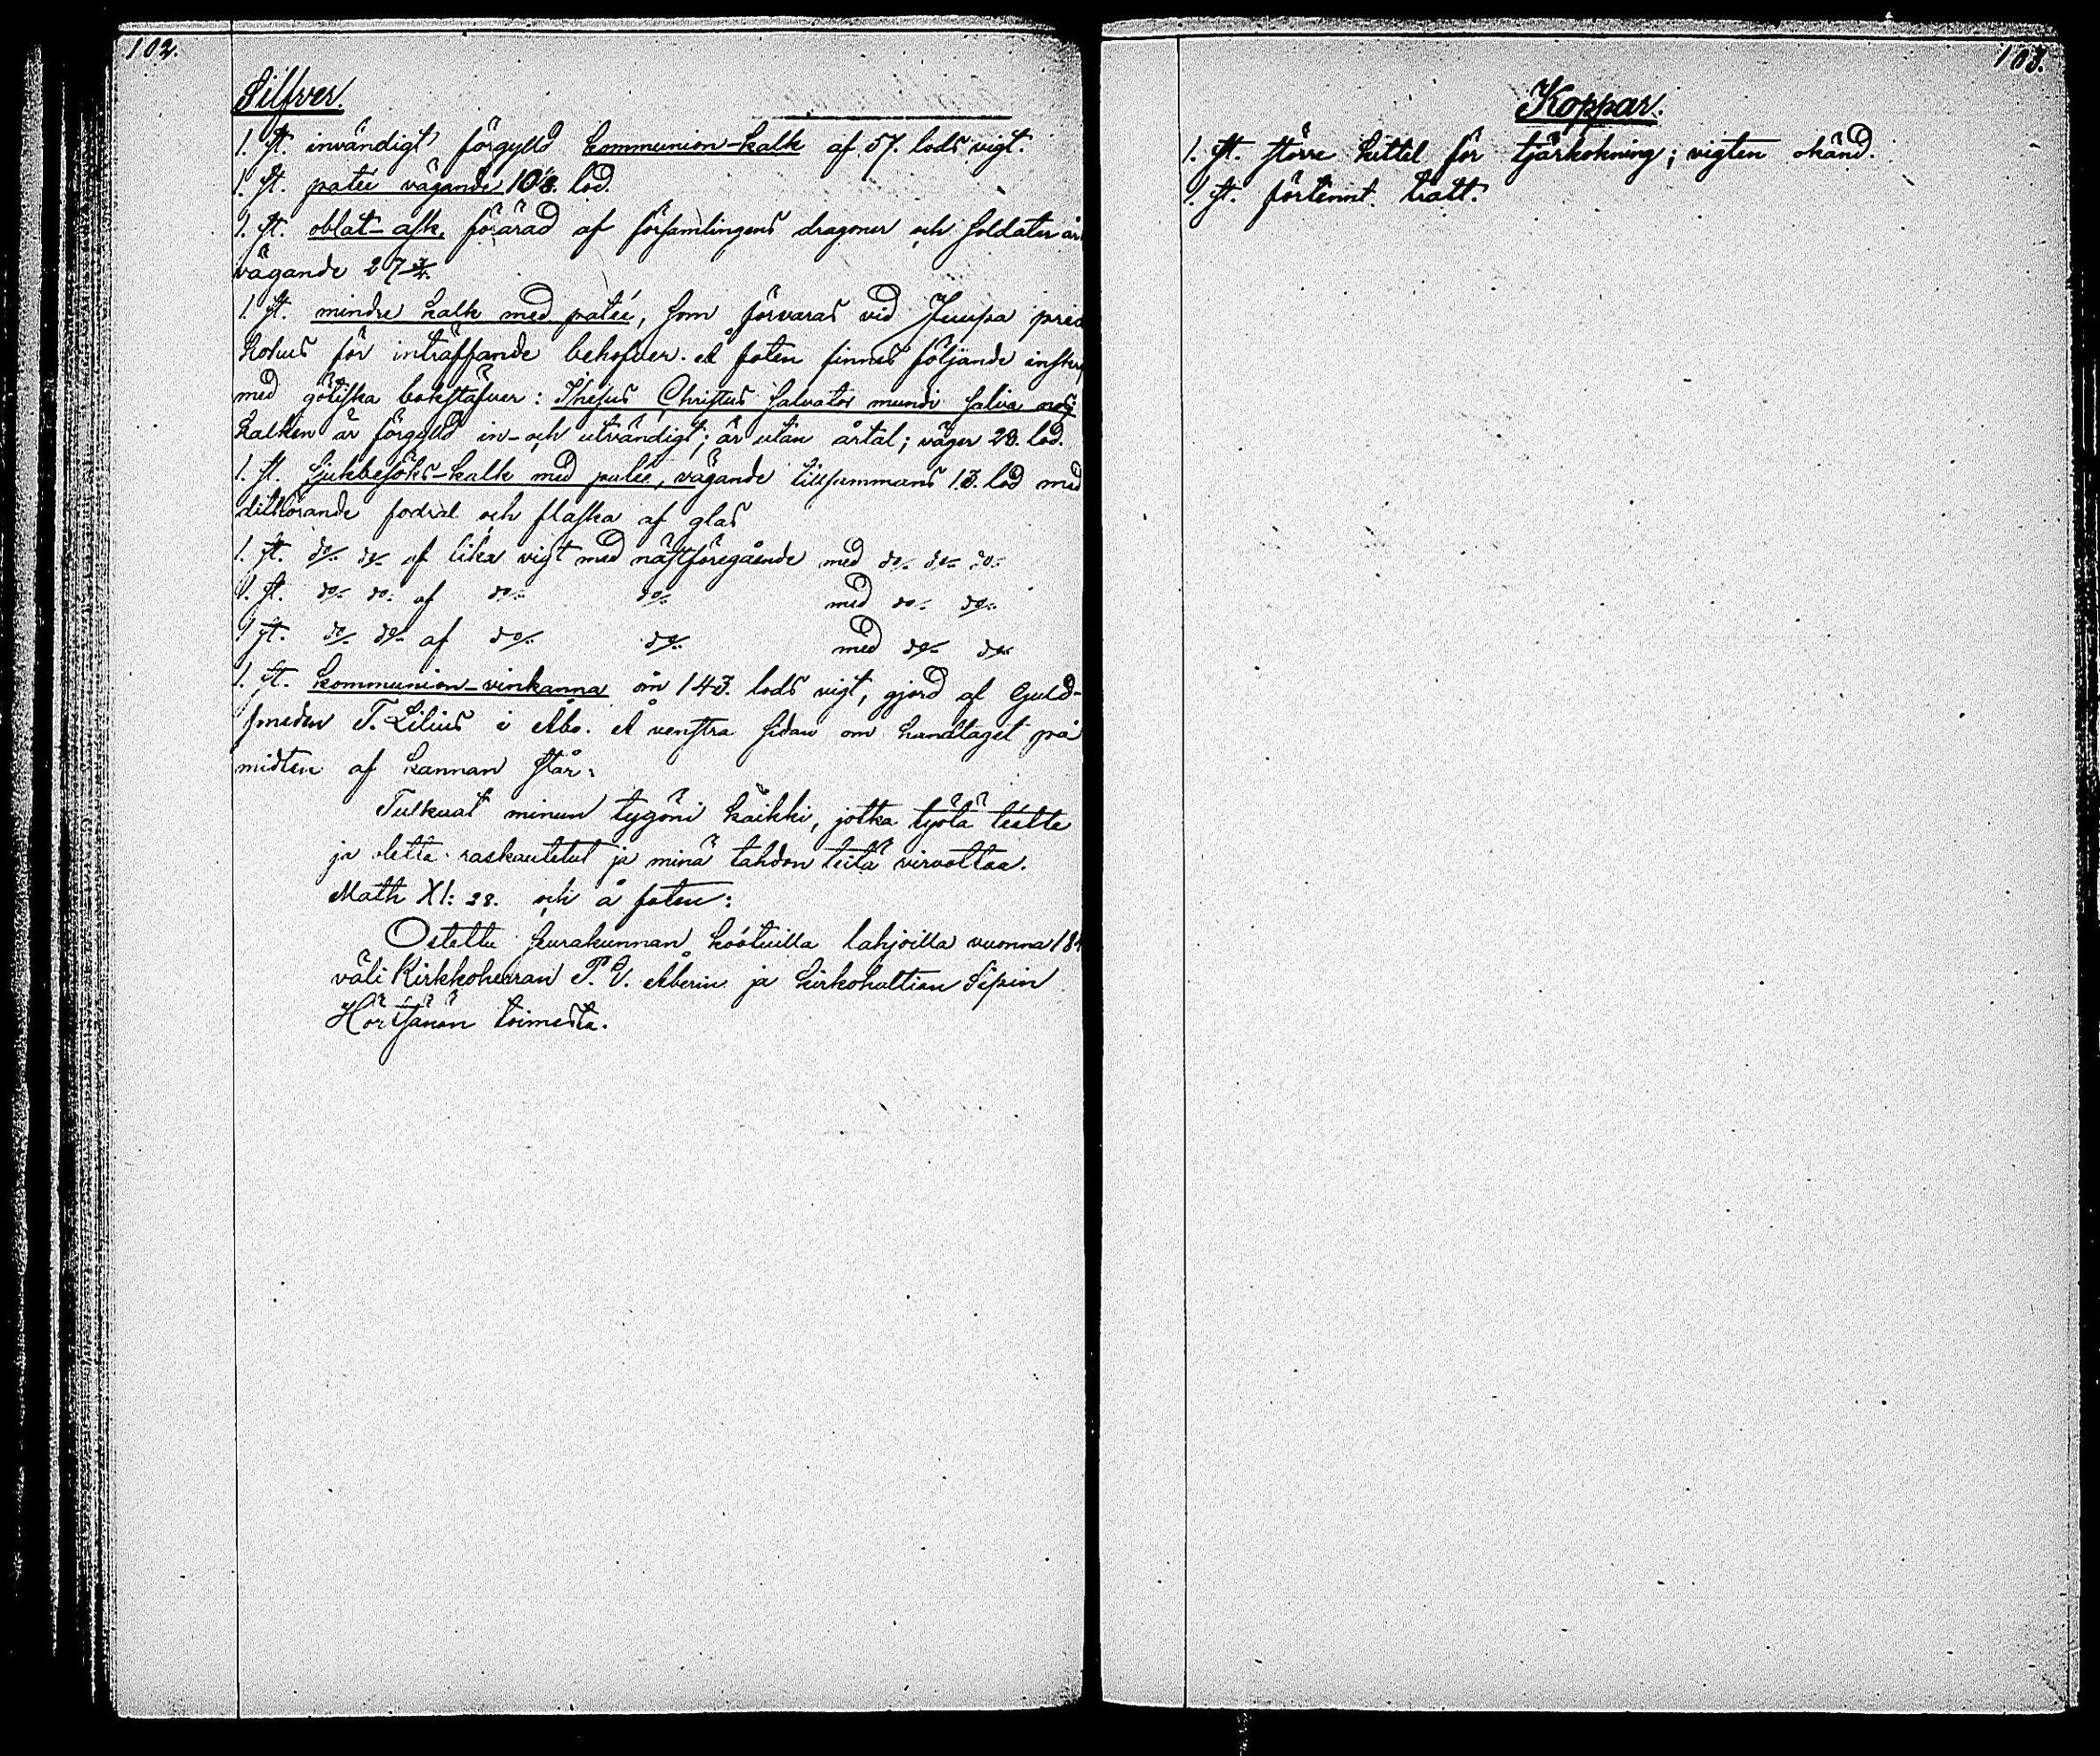 102.
Silfver.
1. st. invändigt förgylld kommunion-kalk af 57. lods vigt.
1. st. patéé vägande 10⅛. lod.
1. st. oblat-ask, förärad af församlingens dragoner och soldater år
vägande 27¾.
1. st. mindre kalk med patéé, som förvaras vid Juupa pred
kohus för inträffande behofver. Å foten finnes följande inskr
med götiska bokstäfver: Ihesus Christus salvator mundi salva nos
Kalken är förgylld in- och utvändigt; är utan årtal; väger 28. lod.
1. st. sjukbesöks-kalk med patéé, vägande tillsammans 13. lod med
dithörande fodral och flaska af glas
1. st. do/. do/. af lika vigt med nästföregående med do/. do/. do/.
1. st. do/. do/. af do/. do/. med do/. do/.
1 st. do/. do/. af do/. do/. med do/. do/.
1. st. Kommunion-vinkanna om 143. lods vigt, gjord af Guld-
smeden T. Lilius i Åbo. Å venstra sidan om handtaget på
midten af kannan står:
Tulkaat minun tygöni kaikki, jotka työtä teette
ja oletta raskautetut ja minä tahdon teitä virvottaa.
Math XI: 28. och å foten:
Ostettu seurakunnan koótuilla lahjoilla vuonna 184
väli Kirkkoherran P. V. Åberin ja kirkohaltian Sipin
Hörtsänän toimesta.
103.
Koppar.
1. st. större kittel för tjärkokning; vigten okänd.
1. st. förtennt tratt.